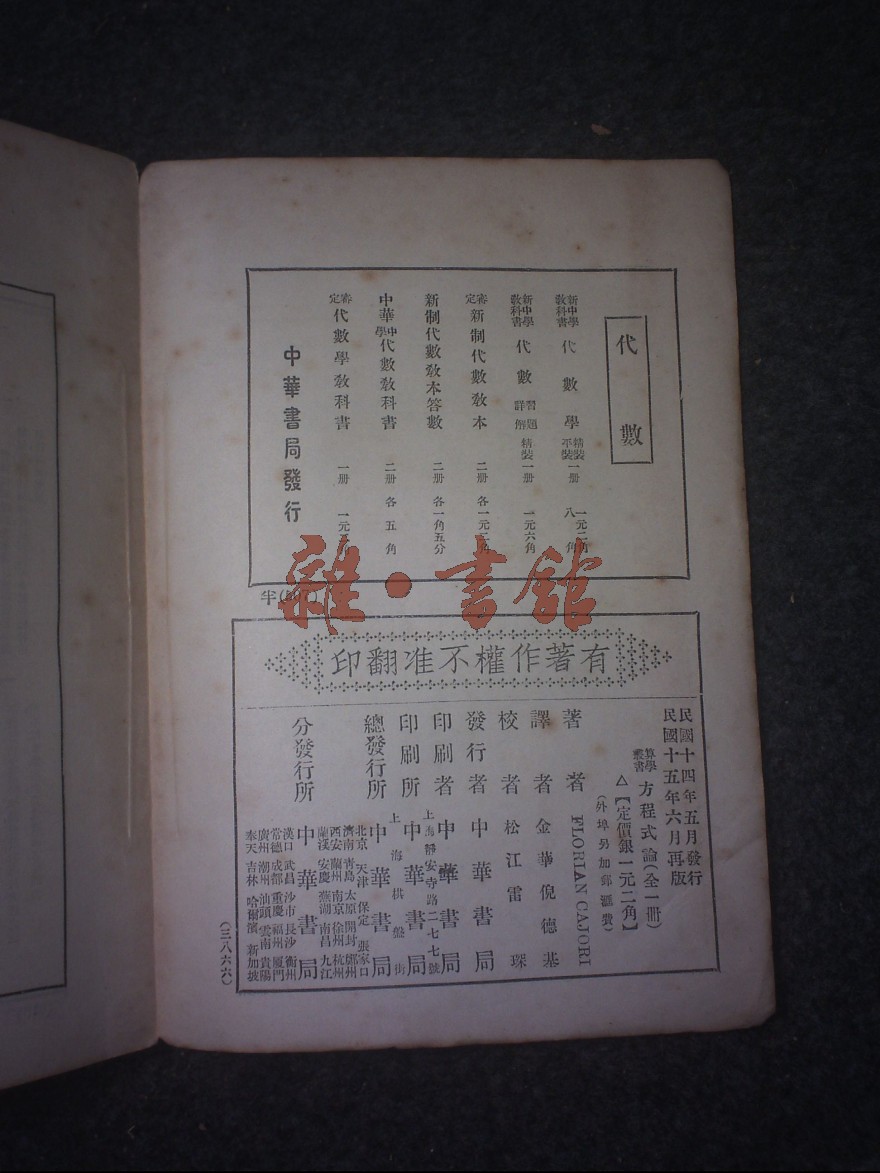 代數
新中學教科書 代數學 精裝 一册 一元二角
平裝 八角
新中學教科書 代數習題詳解 精裝一册 一元六角
審定 新制代數教本 二册 各一元二角
新制代數教本答數 二册 各一角五分
中華中學代數教科書 二册 各五角
審定 代數學教科書 一册
中華書局發行
雜·書館
有著作權不准翻印
民國十四年五月發行
民國十五年六月再版
算學叢書 方程式論(全一冊)
△【定價銀一元二角】
(外埠另加郵滙費)
著者 FLORIAN CAJORI
譯者 金華倪德基
校者 松江雷琛
發行者 中華書局
印刷者 中華書局
上海靜安寺路二七七號
印刷所 中華書局
上海棋盤街
總發行所 中華書局
分發行所 中華書局
北京 天津 保定 張家口
濟南 青島 太原 開封 鄭州
西安 蘭州 南京 徐州 杭州
蘭溪 安慶 蕪湖 南昌 九江
漢口 武昌 沙市 長沙 衡州
常德 成都 重慶 福州 厦門
廣州 潮州 汕頭 雲南 貴陽
奉天 吉林 哈爾濱 新加坡
(三八六六)